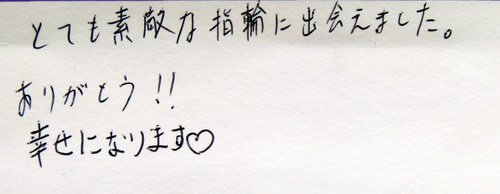 とても素敵な指輪に出会えました。
ありがとう!!
幸せになります♡